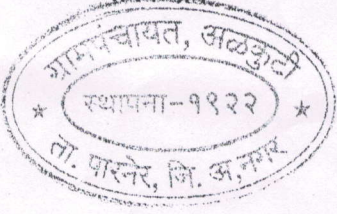 ग्रामपंचायत, अळकुटी
स्थापना-१९२२
ता. पारनेर, जि. अ,नगर